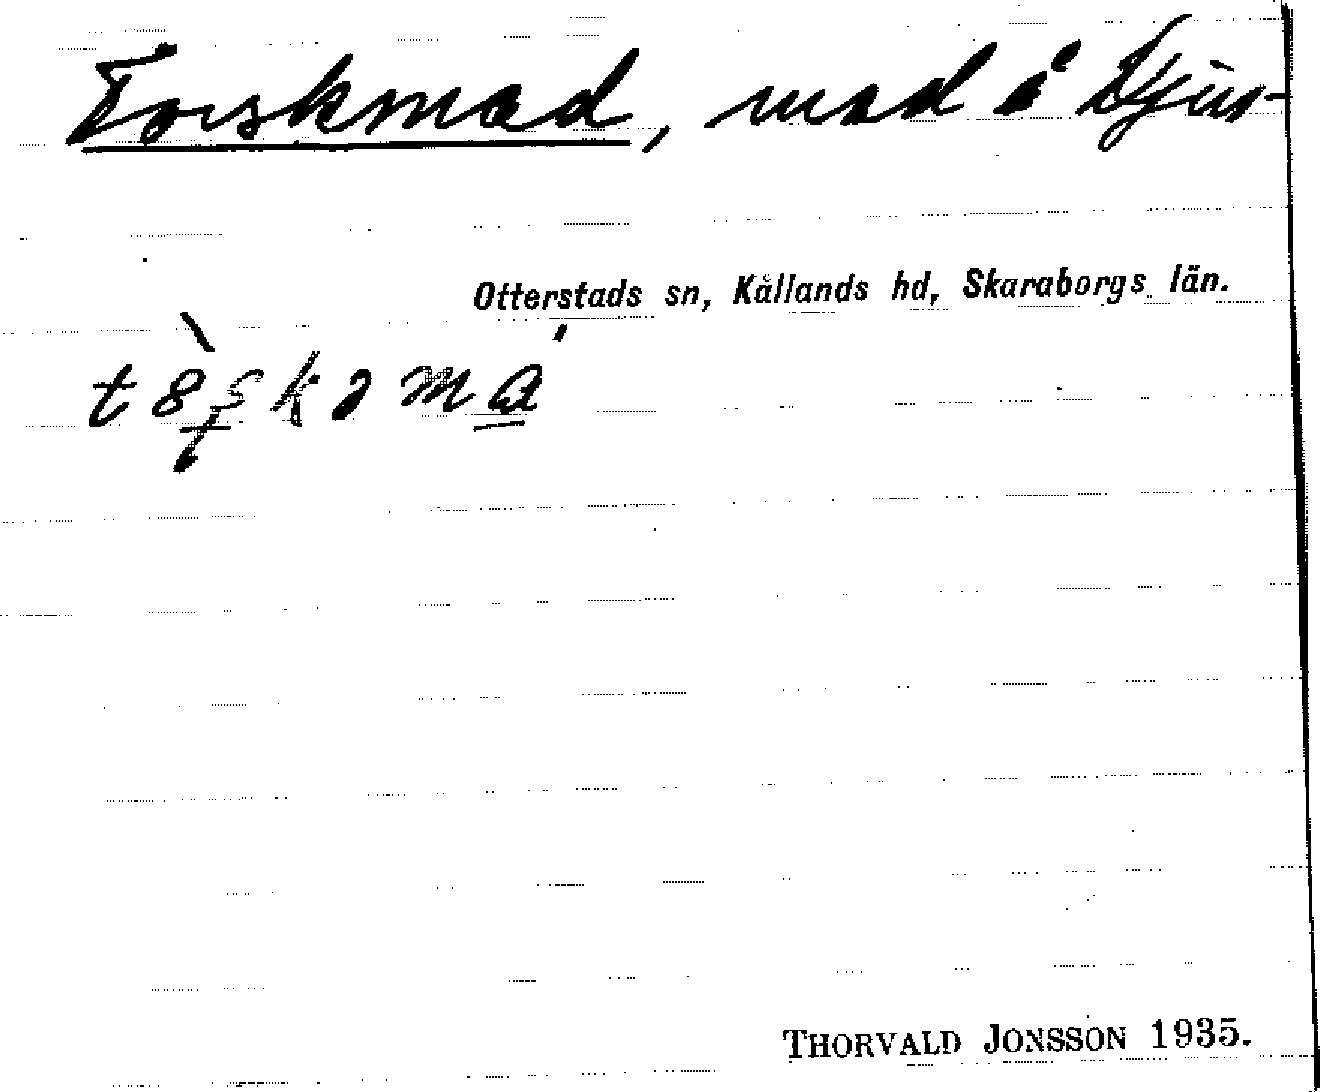 Torskmad, mad å Djur-
Otterstads sn, Kållands hd, Skaraborgs län.
THORVALD JONSSON 1935.